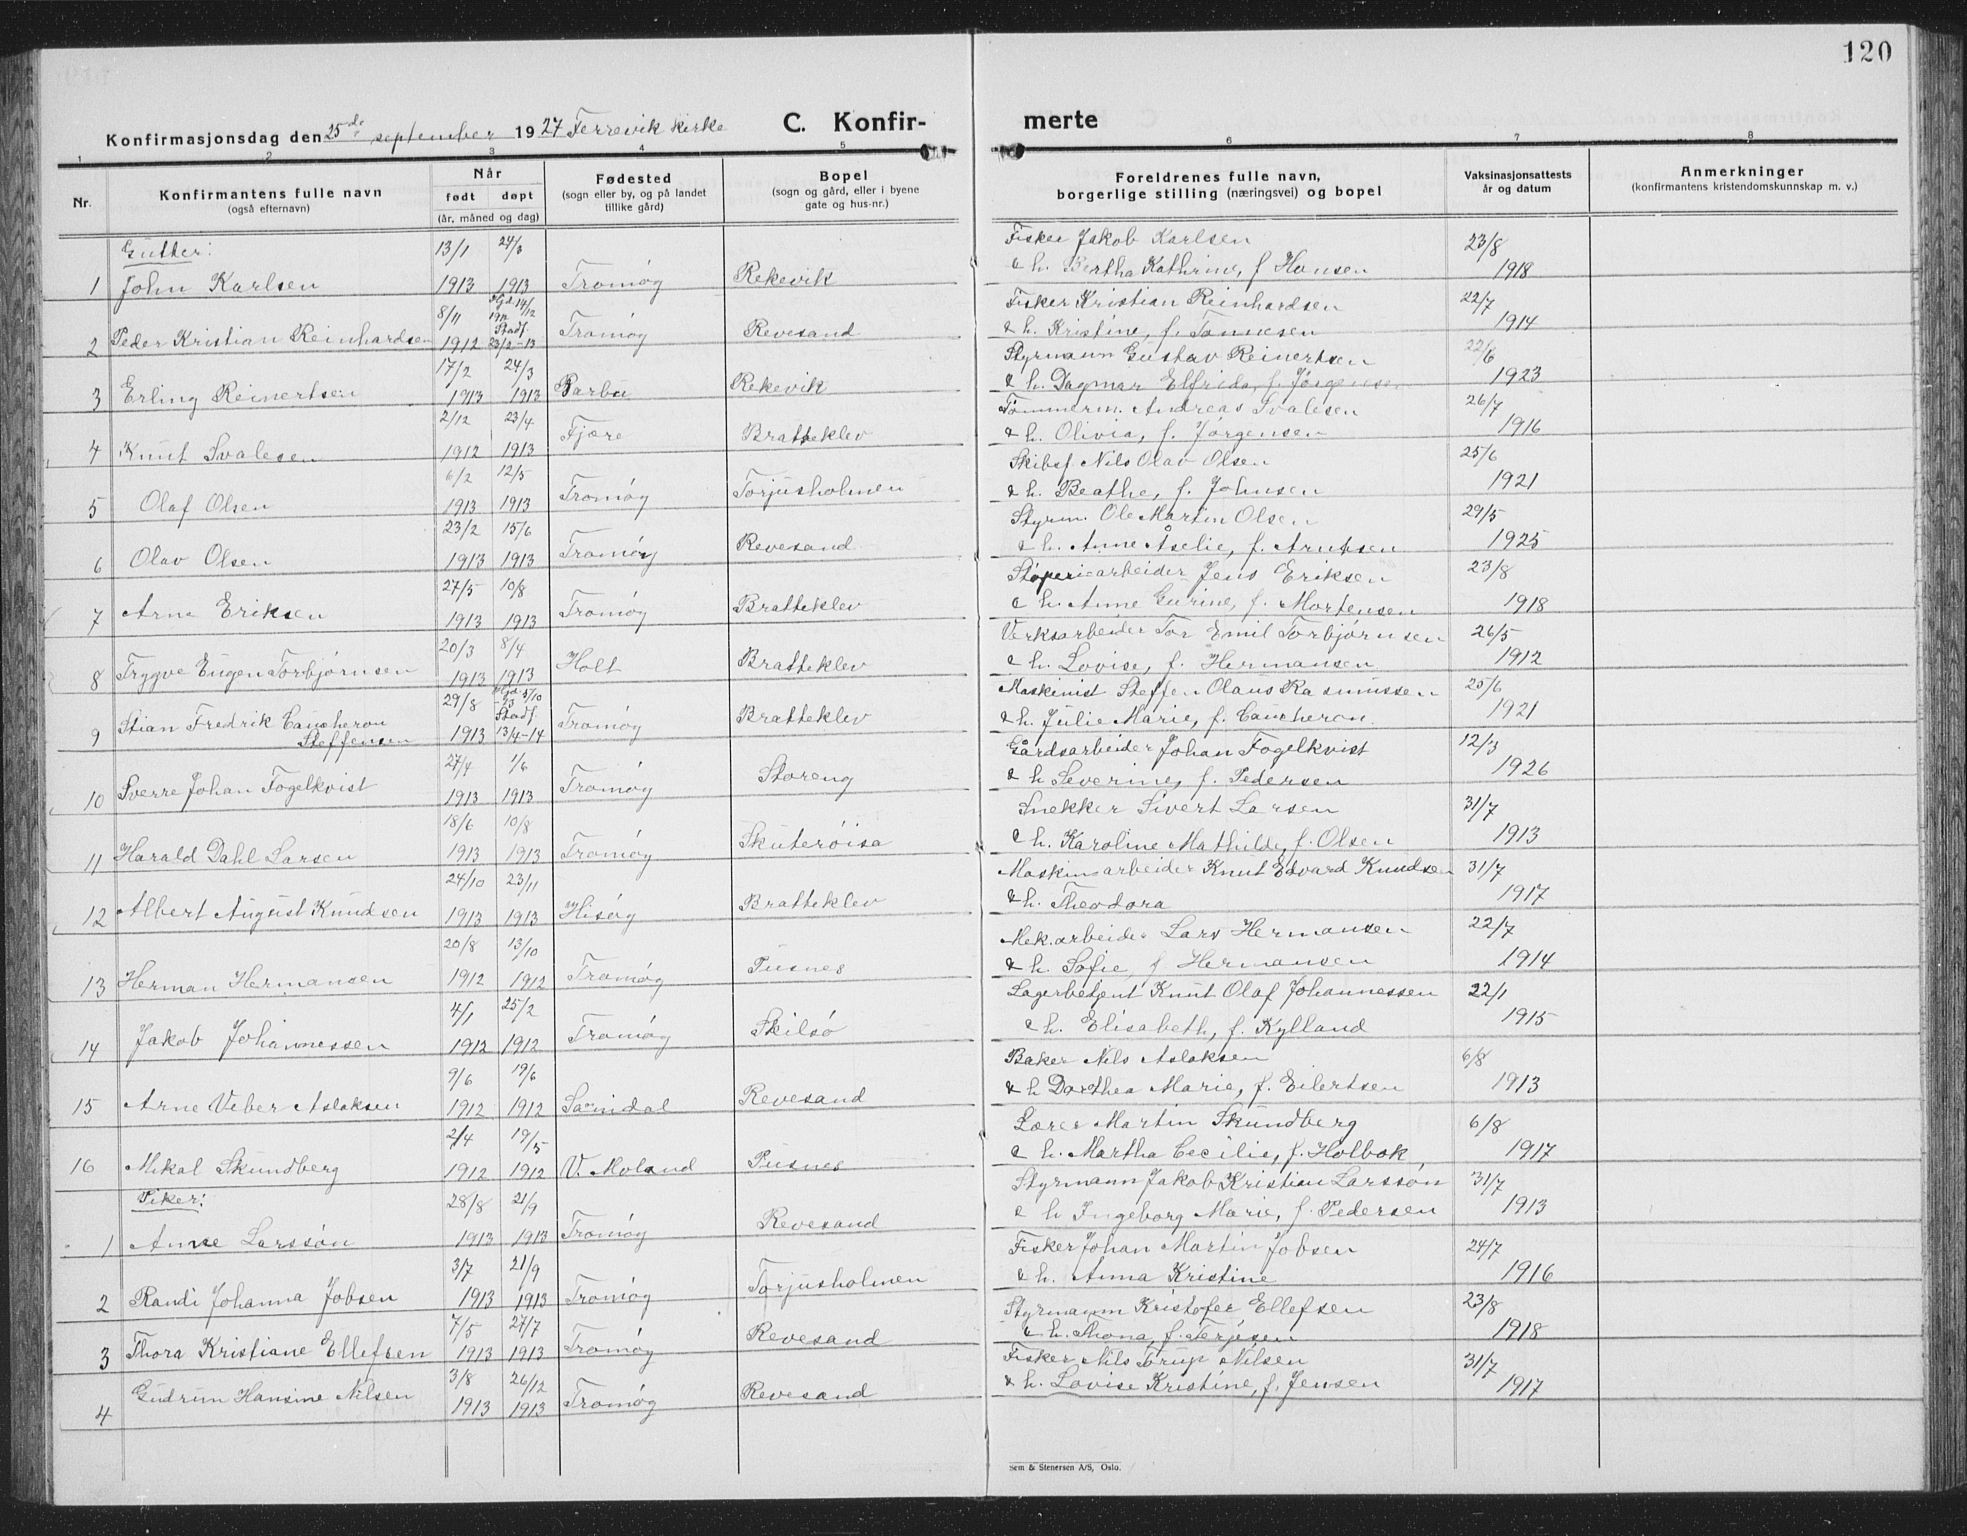 120
Konfirmasjonsdag den 25de september 1927 Ferrevik kirke C. Konfir- merte
1 2 3 4 5 6 7 8
Nr. Konfirmantens fulle navn (også efternavn) Når født døpt (år, måned og dag) Fødested (sogn eller by, og på landet tillike gård) Bopel (sogn og gård, eller i byene gate og hus-nr.) Foreldrenes fulle navn, borgerlige stilling (næringsvei) og bopel Vaksinasjonsattests år og datum Anmerkninger (konfirmantens kristendomskunnskap m. v.)
Gutter:
1 John Karlsen 13/1 1913 24/3 1913 Tromøy Rekevik Fisker Jakob Karlsen & h. Bertha Kathrine, f. Hansen 23/8 1918
2 Peder Kristian Reinhardsen 8/11 1912 Hjd. 14/12 1912 Stadf. 23/2-13 Tromøy Revesand Fisker Kristian Reinhardsen & h. Kristine, f. Tønnesen 22/7 1914
3 Erling Reinertsen 17/2 1913 24/3 1913 Barbu Rekevik Styrmann Gustav Reinertsen & h. Dagmar Elfrida, f. Jørgensen 22/6 1923
4 Knut Svalesen 2/12 1912 23/4 1913 Fjære Bratteklev Tømmerm. Andreas Svalesen & h. Olivia, f. Jørgensen 26/7 1916
5 Olaf Olsen 6/2 1913 12/5 1913 Tromøy Torjusholmen Skibsf. Nils Olav Olsen & h. Beathe, f. Johnsen 25/6 1921
6 Olav Olsen 23/2 1913 15/6 1913 Tromøy Revesand Styrm. Ole Martin Olsen & h. Anne Åselie, f. Arntsen 29/5 1925
7 Arne Eriksen 27/5 1913 10/8 1913 Tromøy Bratteklev Støperiarbeider Jens Eriksen & h. Anne Gurine, f. Mortensen 23/8 1918
8 Trygve Eugen Torbjørnsen 20/3 1913 8/4 1913 Holt Bratteklev Verksarbeider Tor Emil Torbjørnsen & h. Lovise, f. Hermansen 26/5 1912
9 Stian Fredrik Caucheron Steffensen 29/8 1913 Hjd. 5/10 -13 Stadf. 13/4-14 Tromøy Bratteklev Maskinist Steffen Olaus Rasmussen & h. Julie Marie, f. Caucheron. 25/6 1921
10 Sverre Johan Fogelkvist 27/4 1913 1/6 1913 Tromøy Storeng Gårdsarbeider Johan Fogelkvist & h. Severine, f. Pedersen 12/3 1926
11 Harald Dahl Larsen 18/6 1913 10/8 1913 Tromøy Skuterøisa Snekker Sivert Larsen & h. Karoline Mathilde, f. Olsen 31/7 1913
12 Albert August Knudsen 24/10 1913 23/11 1913 Hisøy Bratteklev Maskinarbeider Knut Edvard Knudsen & h. Theodora 31/7 1917
13 Herman Hermansen 20/8 1912 13/10 1912 Tromøy Pusnes Mek. arbeider Lars Hermansen & h. Sofie, f Hermansen 22/7 1914
14 Jakob Johannessen 4/1 1912 25/2 1912 Tromøy Skilsø Lagerbetjent Knut Olaf Johannessen & h. Elisabeth, f. Kylland 22/1 1915
15 Arne Veber Aslaksen 9/6 1912 19/6 1912 Sannidal Revesand Baker Nils Aslaksen & h Dorthea Marie, f. Eilertsen 6/8 1913
16 Mikal Skundberg 2/4 1912 19/5 1912 V. Moland Pusnes Lærer Martin Skundberg & h. Martha Cecilie, f. Holbok 6/8 1917
Piker:
1 Anne Larssøn 28/8 1913 21/9 1913 Tromøy Revesand Styrmann Jakob Kristian Larssøn & h Ingeborg Marie, f. Pedersen 31/7 1913
2 Randi Johanna Jobsen 3/7 1913 21/9 1913 Tromøy Torjusholmen Fisker Johan Martin Jobsen & h. Anna Kristine 24/7 1916
3 Thora Kristiane Ellefsen 7/5 1913 27/7 1913 Tromøy Revesand Styrmann Kristofer Ellefsen & h. Thona, f. Terjesen 23/8 1918
4 Gudrun Hansine Nilsen 3/8 1913 26/12 1913 Tromøy Revesand Fisker Nils Torup Nilsen & h. Lovise Kristine, f. Jensen 31/7 1917
Sem & Stenersen A/S, Oslo.